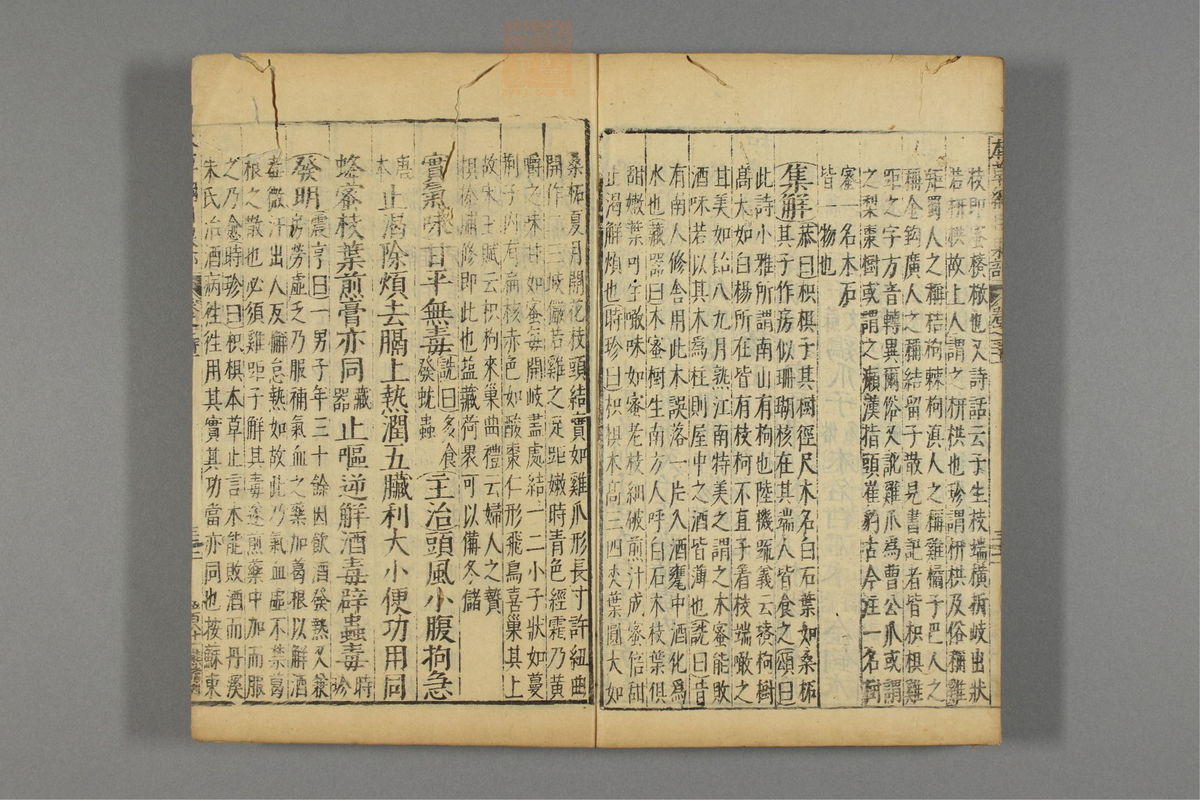 枝即𡥀
若枅栱故士人謂之枅栱也珍謂枅栱及俗稱雞
距蜀人之稱桔枸棘枸滇人之稱雞橘子巴人之
稱金鉤廣人之稱結留子散見書記者皆枳椇雞
距之字方音轉異爾俗又訛雞爪爲曹公爪或謂
之梨棗樹或謂之癩漢指頭崔豹古今注一名樹
蜜一名木石
皆一物也
集解恭曰枳椇其樹徑尺木名白石葉如桑柘
其子作房似珊瑚核在其端人皆食之頌曰
此詩小雅所謂南山有枸也陸機疏義云椅枸樹
高大如白楊所在皆有枝柯不直子着枝端噉之
甘美如飴八九月熟江南特美之木蜜能敗
酒味若以其木爲柱則屋中之酒皆薄也詵曰昔
有南人修舍用此木誤落一片入酒甕中酒化爲
水也藏器曰木蜜樹生南方人呼白石木枝葉俱
甜嫩葉可生噉味如蜜老枝細破煎汁成蜜倍甜
止渴解煩也時珍曰枳椇木高三四丈葉圓大如
桑柘夏月開花枝頭結實如雞爪形長寸許紐曲
開作二三岐儼若雞之足距嫩時青色經霜乃黃
嚼之味甘如蜜每開岐盡處結一二小子狀如蔓
荊子內有扁核赤色如酸棗仁形飛鳥喜巢其上
故宋玉賦云枳枸來巢曲禮云婦人之贄
椇榛脯修即此也鹽藏荷裹可以備冬儲
實氣味甘平無毒詵曰多食發蚘蟲主治頭風小腹拘急
唐本止渴除煩去膈上熱潤五臟利大小便功用同
蜂蜜枝葉煎膏亦同藏器止嘔逆解酒毒辟蟲毒時珍
發明震亨曰一男子年三十餘因飲酒發熱又兼
房勞虛乏乃服補氣血之藥加葛根以解酒
毒微汗出人反懈怠熱如故此乃氣血虛不禁葛
根之散也必須雞距子解其毒遂煎藥中加而服
之乃愈時珍曰枳椇本草止言木能敗酒而丹溪
朱氏治酒病往往用其實其功當亦同也按蘇東